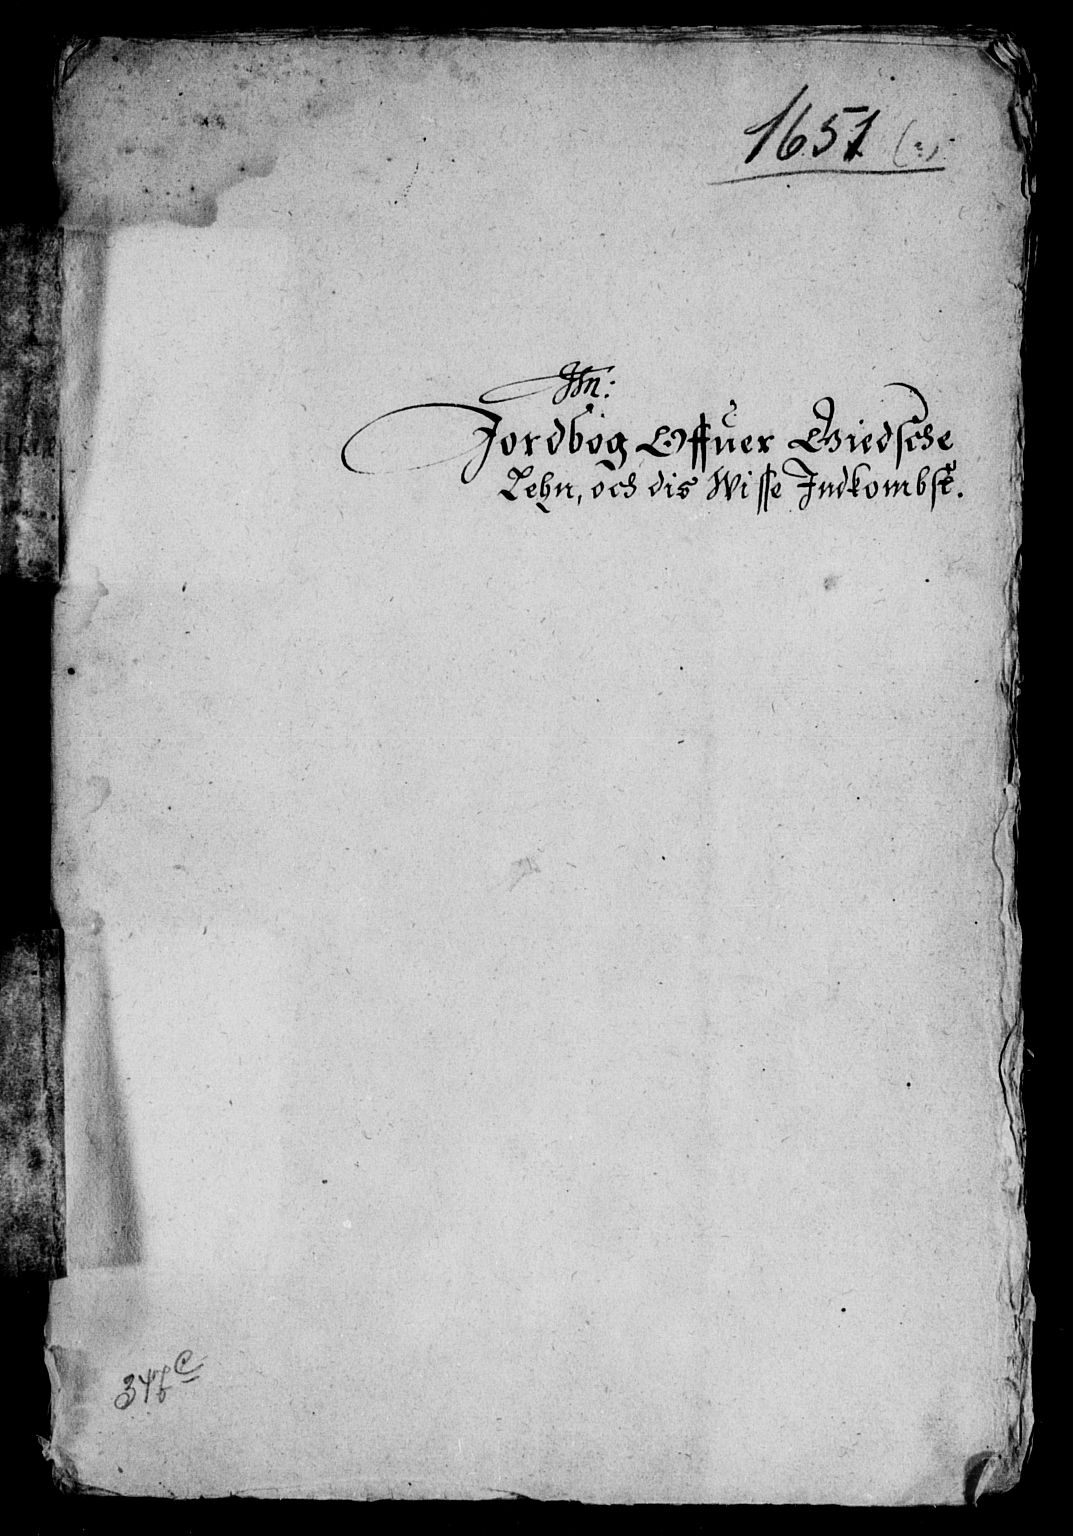 1651 (a).
Jordbog Offuer Giedsche
Lehn, och dis Wisse Indkombst.
346 C